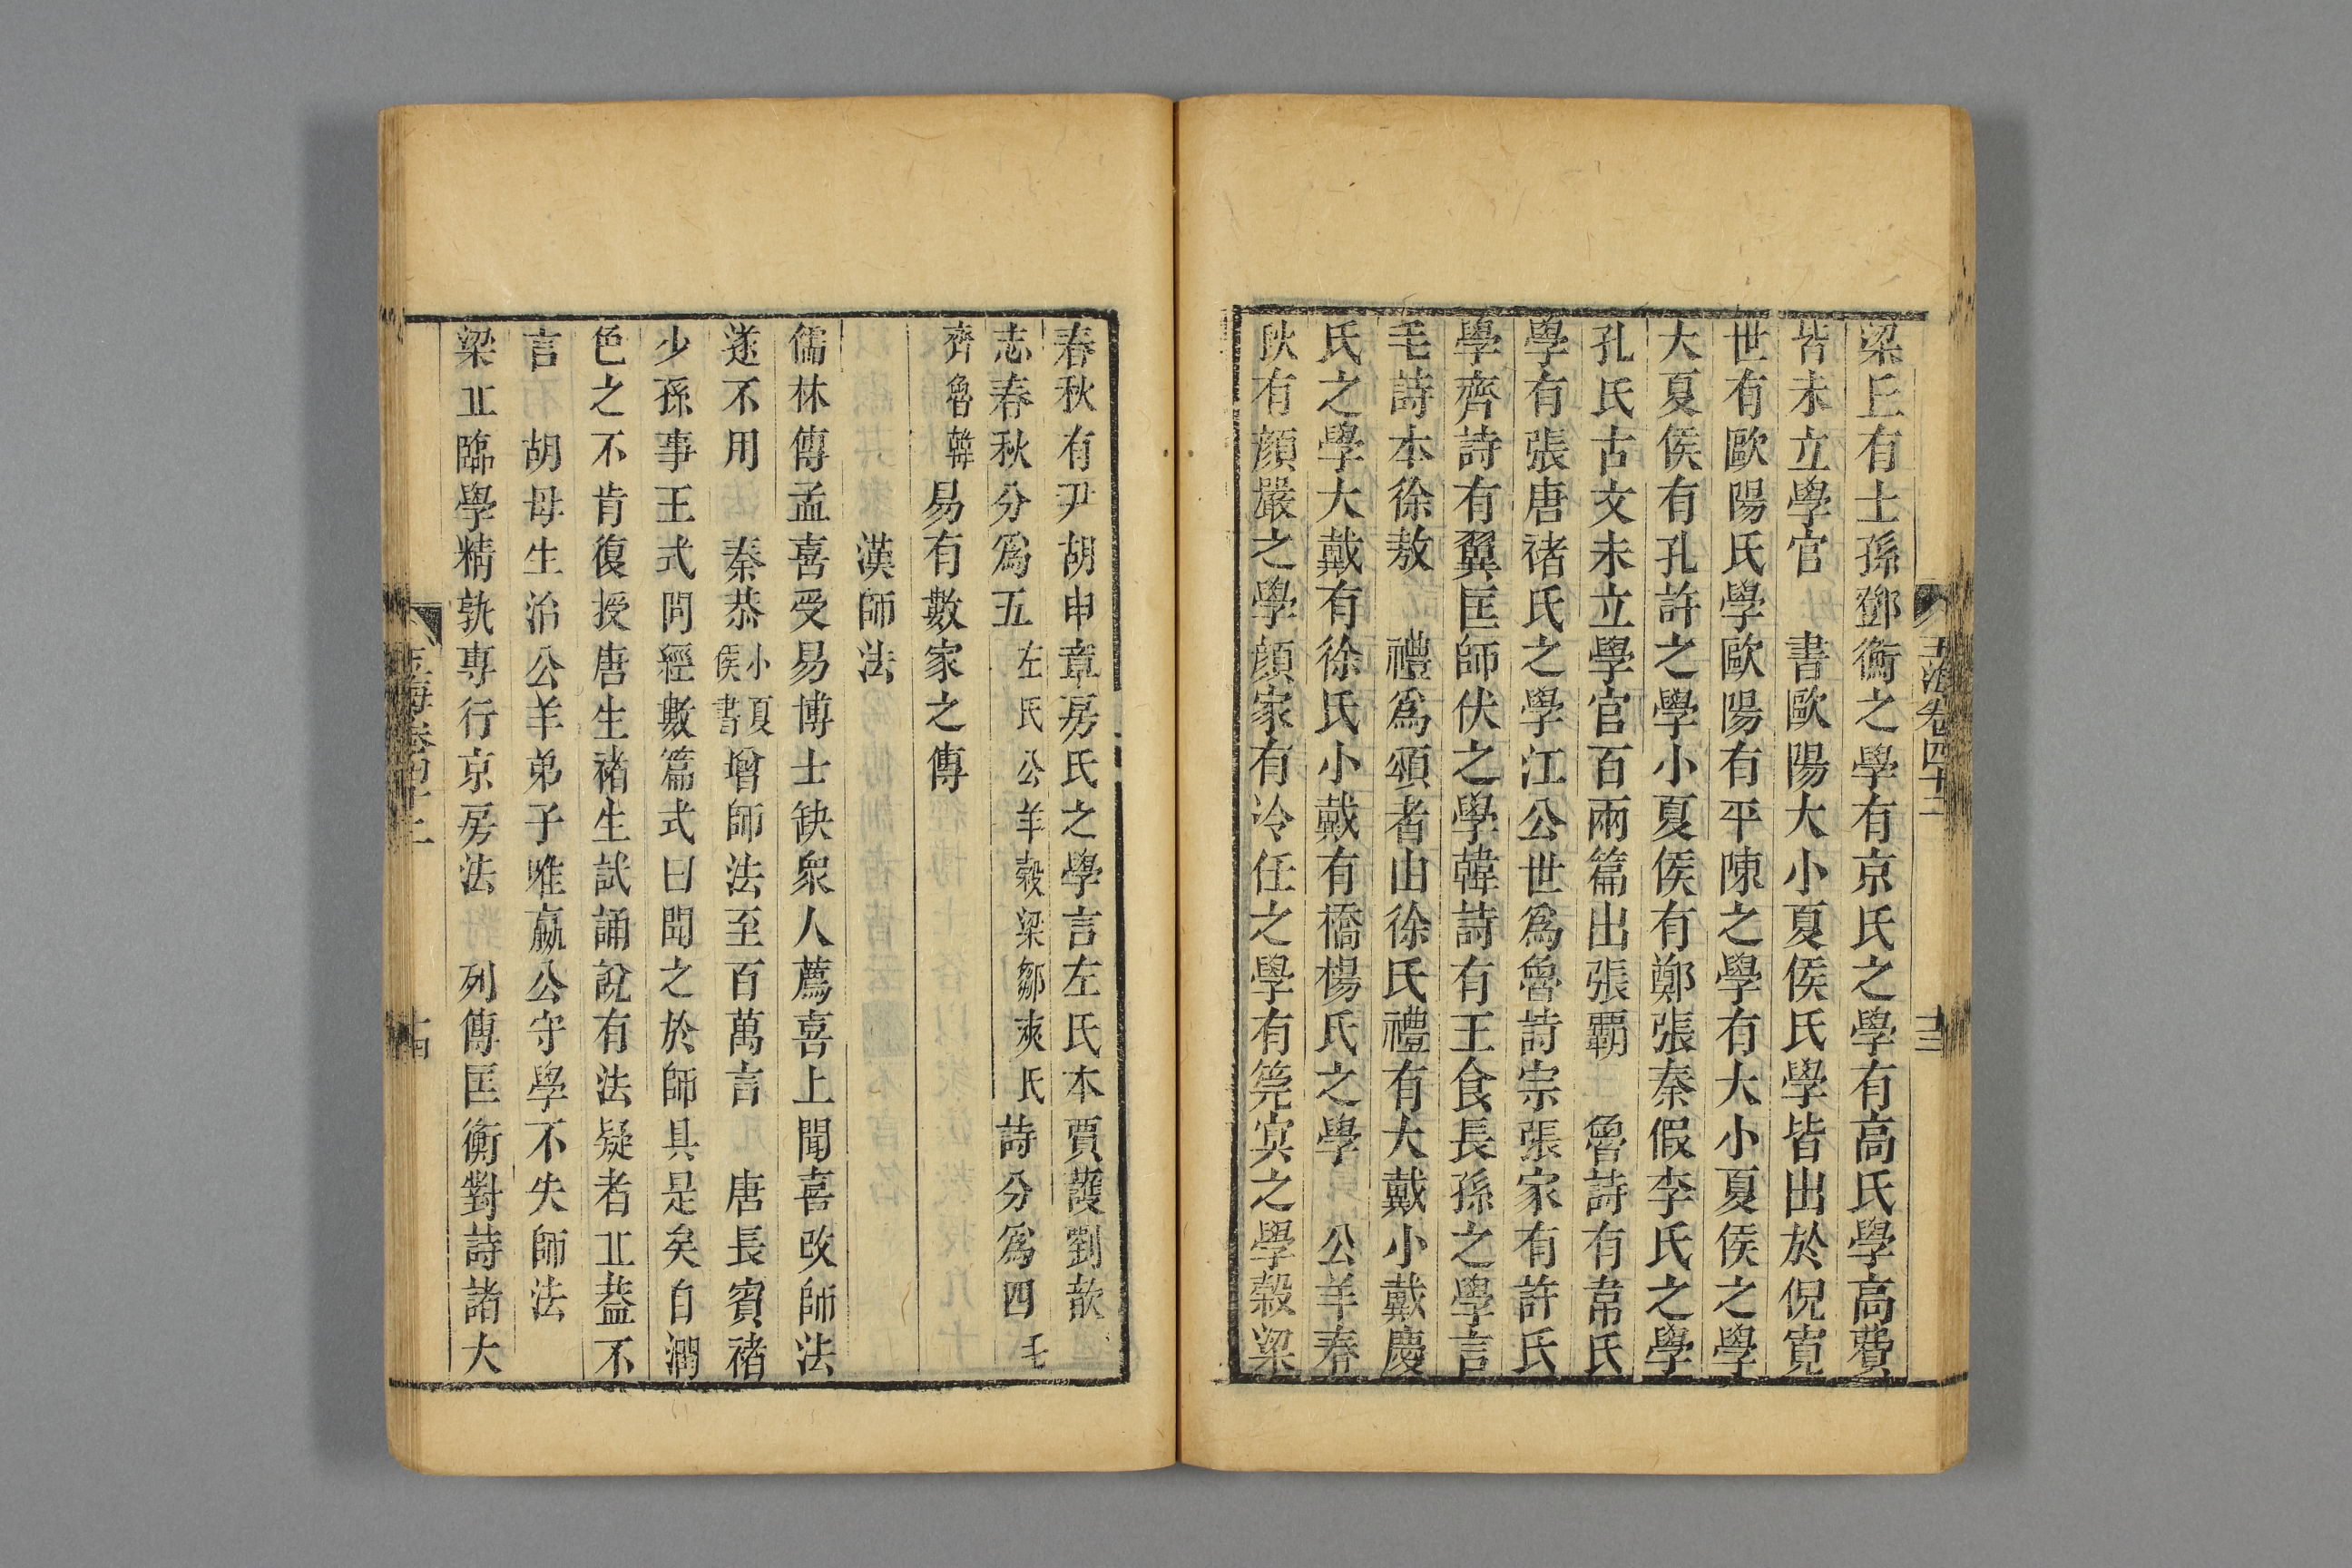 玉海卷四十二
十三
梁丘有士孫鄧衡之學有京氏之學有高氏學高費
皆未立學官　書歐陽大小夏侯氏學皆出於倪寬
世有歐陽氏學歐陽有平陳之學有大小夏侯之學
大夏侯有孔許之學小夏侯有鄭張秦假李氏之學
孔氏古文未立學官百兩篇出張霸　魯詩有韋氏
學有張唐禇氏之學江公世爲魯詩宗張家有許氏
學齊詩有翼匡師伏之學韓詩有王食長孫之學言
毛詩本徐敖　禮爲頌者由徐氏禮有大戴小戴慶
氏之學大戴有徐氏小戴有橋楊氏之學　公羊春
秋有顏嚴之學顏家有泠任之學有筦㝠之學榖梁
春秋有尹胡申章房氏之學言左氏本賈護劉歆
志春秋分爲五左氏公羊榖梁鄒夾氏詩分爲四毛
齊魯韓易有數家之傳
漢師法
儒林傳孟喜受易博士缺衆人薦喜上聞喜改師法
遂不用　秦恭小夏侯書增師法至百萬言　唐長賓禇
少孫事王式問經數篇式曰聞之於師具是矣自潤
色之不肯復授唐生禇生試誦說有法疑者丠葢不
言　胡母生治公羊弟子唯嬴公守學不失師法
梁丠臨學精孰專行京房法　列傳匡衡對詩諸大
玉海卷四十二
十四